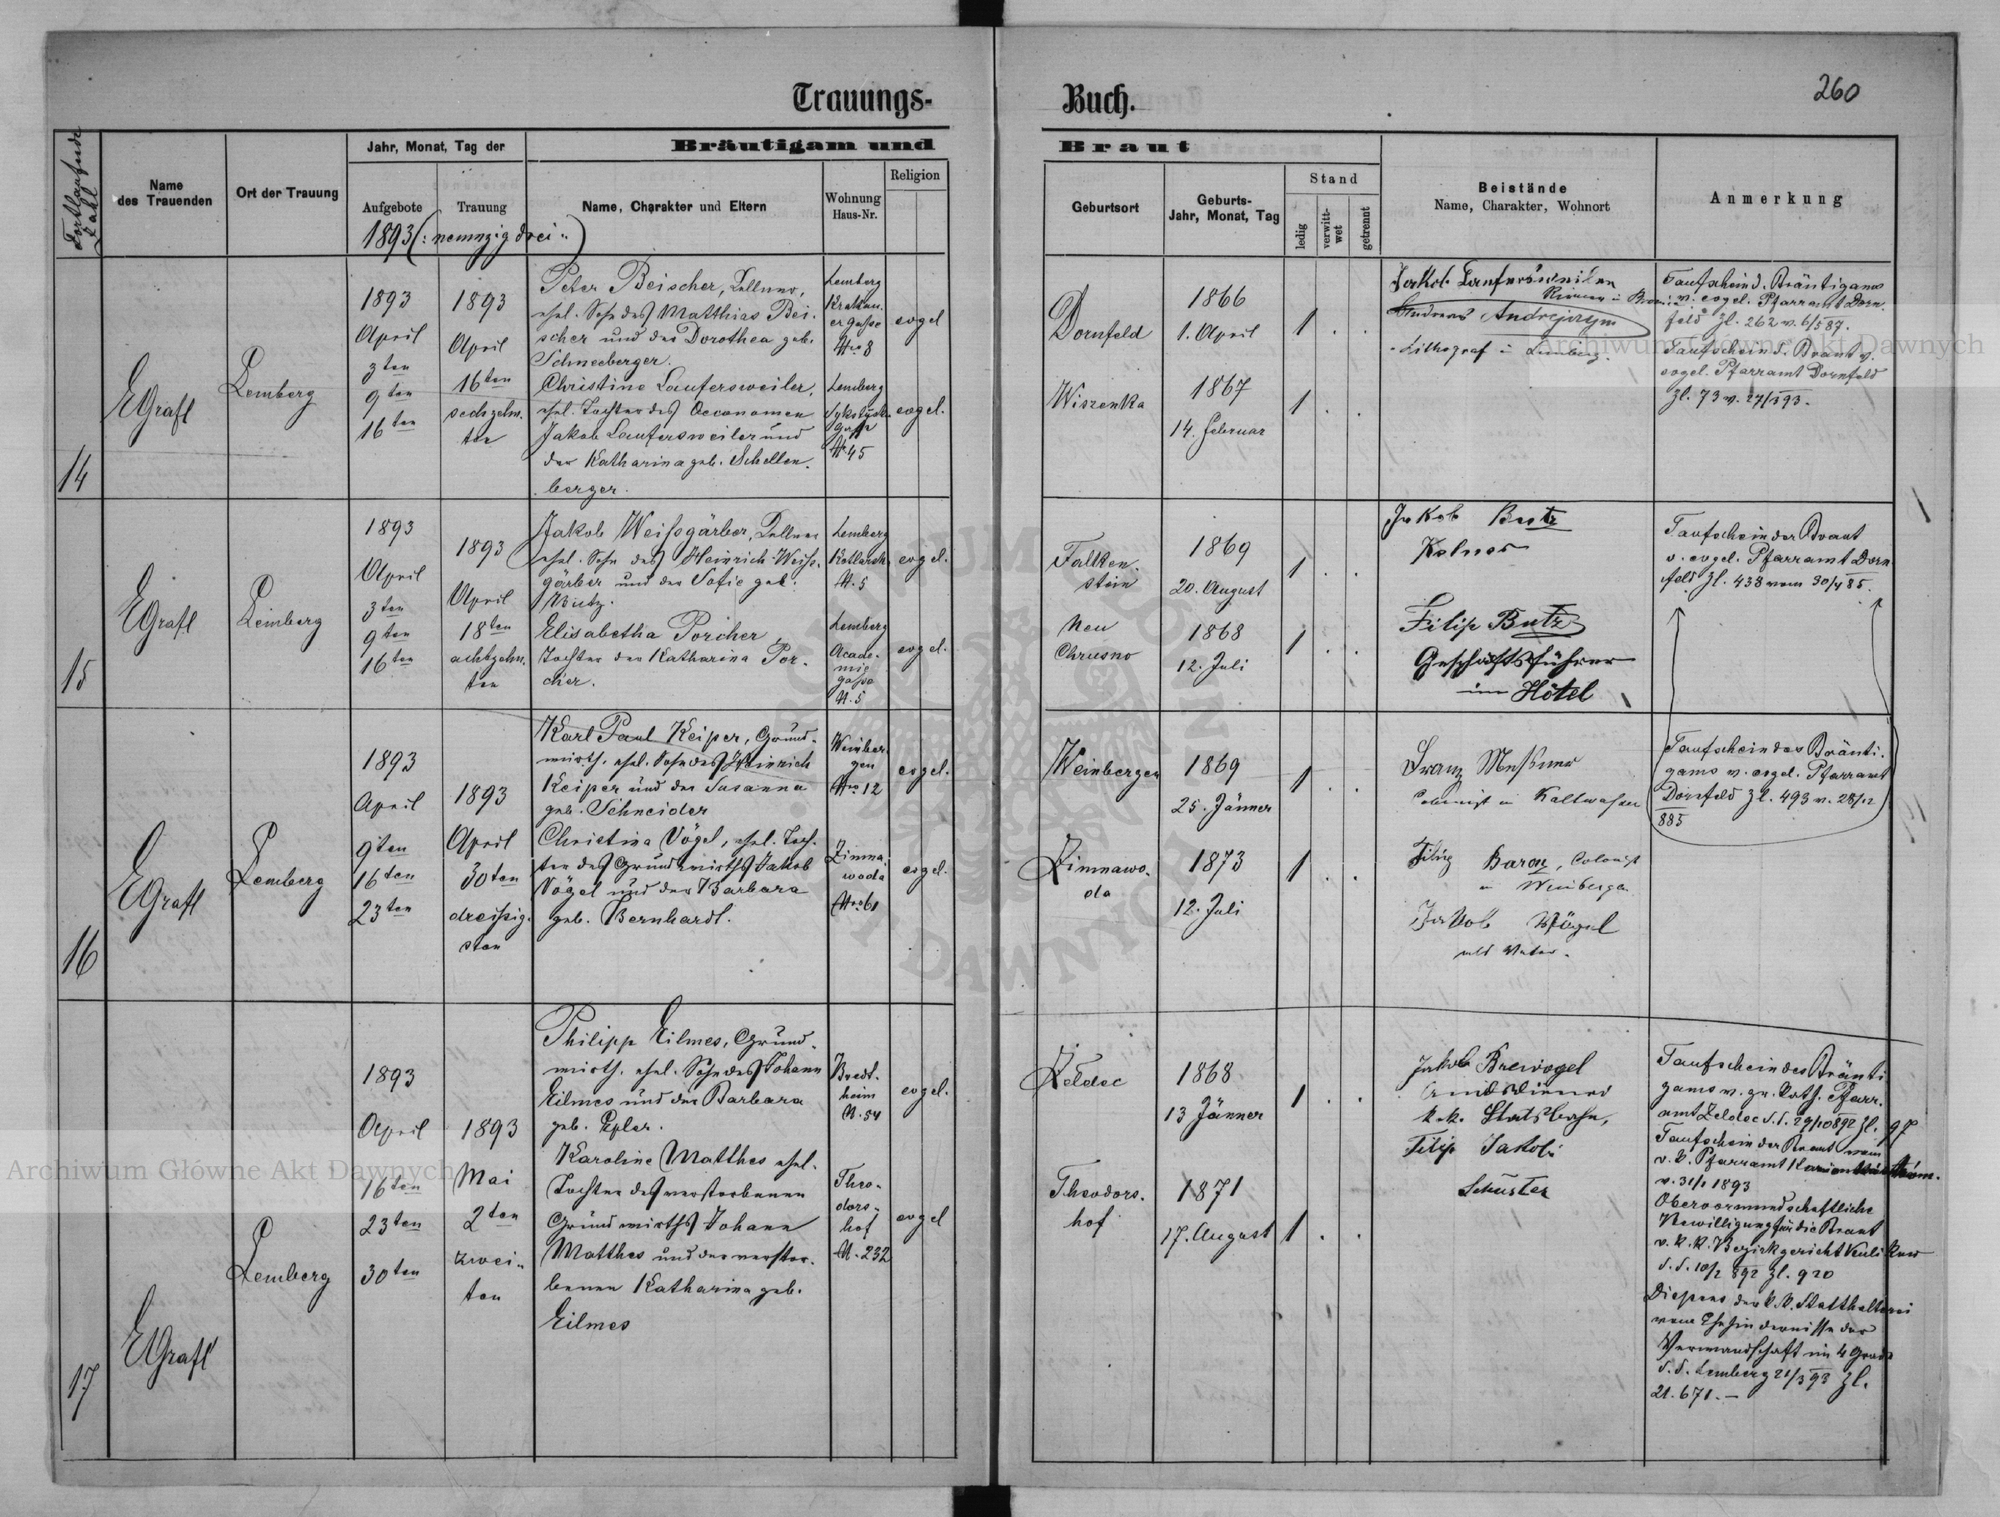 Trauungs-
Buch.
260
Fortlaufende
Zahl
Name
des Trauenden
Ort der Trauung
Jahr, Monat, Tag der
Aufgebote
Trauung
Bräutigam und
Name, Charakter und Eltern
Wohnung
Haus-Nr.
Religion
Braut
Geburtsort
Geburts-
Jahr, Monat, Tag
Stand
ledig
verwitt-
wet
getrennt
Beistände
Name, Charakter, Wohnort
Anmerkung
1893 (: neunzig drei :)
14
EGrafl
Lemberg
1893
April
3ten
9ten
16ten
1893
April
16ten
sechzehn-
ten
Peter Beischer, Kellner,
ehel. Sohn des Matthias Bei-
scher und der Dorothea geb.
Schneeberger.
Christine Laufersweiler,
ehel. Tochter des Oeconomen
Jakob Laufersweiler und
der Katharina geb. Schellen-
berger.
Lemberg
Krakau-
er gasse
Nro 8
Lemberg
gasse
N. 45
evgel
evgel.
Dornfeld
Wiszenka
1866
1. April
1867
14. Februar
1 . .
1 . .
Jakob Laufersweiler
Andreas Andrejczyn
Lithograf in Lemberg.
Taufschein d. Bräutigams
v. evgel. Pfarramt Dorn-
feld Zl. 262 v. 6/5 87.
Taufschein d. Braut v.
evgel. Pfarramt Dornfeld
Zl. 73 v. 27/3 93.
15
EGrafl
Lemberg
1893
April
3ten
9ten
16ten
1893
April
18ten
achtzehn-
ten
Jakob Weißgärber, Kellner
ehel. Sohn des Heinrich Weiß-
gärber und der Sofie geb.
Elisabetha Porcher,
Tochter der Katharina Por-
cher.
Lemberg
Kotlarsk.
N. 5
Lemberg
Acade-
mie
gasse
N. 5
evgel.
evgel.
Falken-
stein
Neu
Chrusno
1869
20. August
1868
12. Juli
1 . .
1 . .
Jakob Butz
Kelner
Filip Butz
Geschäftsführer
im Hôtel
Taufschein der Braut
v. evgel. Pfarramt Dorn
feld Zl. 438 vom 30/4 85.
16
EGrafl
Lemberg
1893
April
9ten
16ten
23ten
1893
April
30ten
dreißig-
sten
Karl Paul Keiper, Grund-
wirth, ehel. Sohn des Heinrich
Keiper und der Susanna
geb. Schneider
Christina Vögel, ehel. Toch-
ter des Grundwirths Jakob
Vögel und der Barbara
geb. Bernhardt.
Weinber
gen
Nro 12
Zimna-
woda
Nro 61
evgel.
evgel.
Weinbergen
Zimnawo-
da
1869
25. Jänner
1873
12. Juli
1 . .
1 . .
Franz Meßner
Colonist in Kaltwasser
Filip Baron, Colonist
in Weinbergen
Jakob Vögel
als Vater.
Taufschein des Bräuti-
gams v. evgel. Pfarramt
Dornfeld Zl. 493 v. 28/12
885
17
EGrafl
Lemberg
1893
April
16ten
23ten
30ten
1893
Mai
2ten
zwei-
ten
Philipp Eilmes, Grund-
wirth, ehel. Sohn des Johann
Eilmes und der Barbara
geb. Epler.
Karoline Matthes ehel.
Tochter des verstorbenen
Grundwirths Johann
Matthes und der verstor-
benen Katharina geb.
Eilmes
Bredt-
heim
N. 54
Theo-
dors-
hof
N. 232
evgel.
evgel
Żełdec
Theodors-
hof
1868
13 Jänner
1871
17. August
1 . .
1 . .
Jakob Breivogel
Amtsdiener
k.k. Statsbahn,
Filip Jakobi
Schuster
Taufschein des Bräuti
gams v. gr. kath. Pfarr-
amt Żełdec d. d. 29/10 892 Zl. 97
Taufschein der Braut vom
v. 31/1 1893
Obervormundschaftliche
Bewilligung für die Braut
v. k. k. Bezirksgericht Kulikow
d. d. 10/2 892 Zl. 920
Dispens der k. k. Statthalterei
vom Ehehindernisse der
Verwandschaft im 4 Grade
d. d. Lemberg 21/3 93 Zl.
21.671. —
Archiwum Główne Akt Dawnych
Archiwum Główne Akt Dawnych